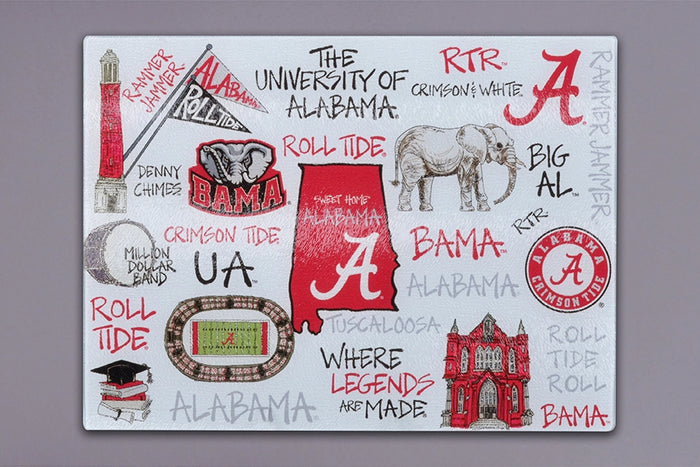 RAMMER
JAMMER
ALABAMA
ROLL TIDE
THE
UNIVERSITY OF
ALABAMA
RTR™
CRIMSON & WHITE™
A
RAMMER JAMMER
DENNY
CHIMES
BAMA
ROLL TIDE
BIG
AL™
RTR
SWEET HOME
ALABAMA
A
CRIMSON TIDE
MILLION
DOLLAR
BAND
UA™
BAMA™
ALABAMA
ALABAMA
A
CRIMSON TIDE
ROLL
TIDE
A
TUSCALOOSA
WHERE
LEGENDS
ARE MADE
ALABAMA
ROLL
TIDE
ROLL
BAMA